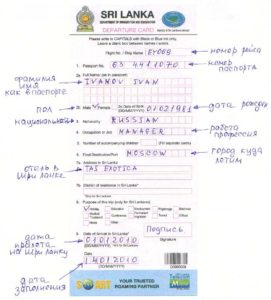 SRI LANKA
DEPARTMENT OF IMMIGRATION AND EMIGRATION
DEPARTURE CARD
Please write in CAPITALS with Black or Blue ink only.
Leave a blank box between names / words.
Flight No. / Ship Name EY009 номер рейса
1. Passport No. 63 4410070 номер паспорта
2a. Full Name (as in passport)
фамилия имя как в паспорте IVANOV IVAN
пол 2b. Male Female 2c. Date of Birth 01/02/1981 дата рожден
национальной 3. Nationality RUSSIAN
4. Occupation or Job MANAGER работа профессия
5. Number of accompanying children
6. Final Destination/Port MOSCOW город куда летим
отель в Шри Ланке 7a. Address in Sri Lanka
TAS EXOTICA
7b. District of residence in Sri Lanka
8. Purpose of the trip
подпись
дата прилета на Шри Ланку 9. Date of Arrival in Sri Lanka
01012010
(DD/MM/YYYY) Signature
Date
14012010
(DD/MM/YYYY)
дата заполнения
SMART YOUR TRUSTED ROAMING PARTNER Mobitel